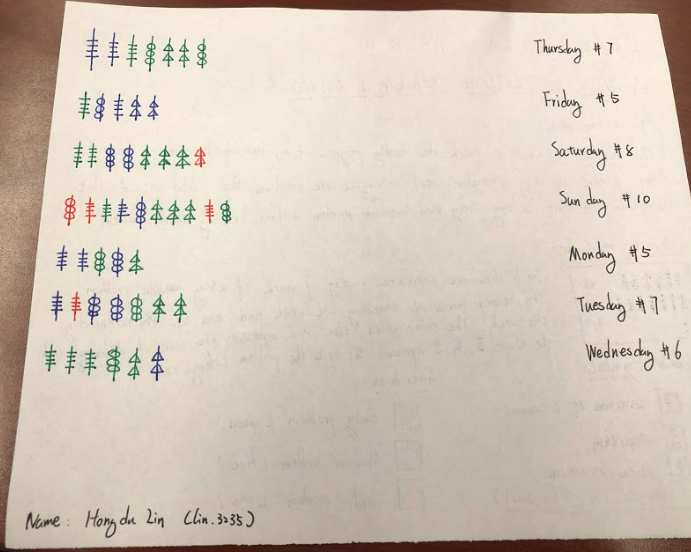 Thursday #7
Friday #5
Saturday #8
Sunday #10
Monday #5
Tuesday #7
Wednesday #6
Name: Hongda Lin (lin.3235)